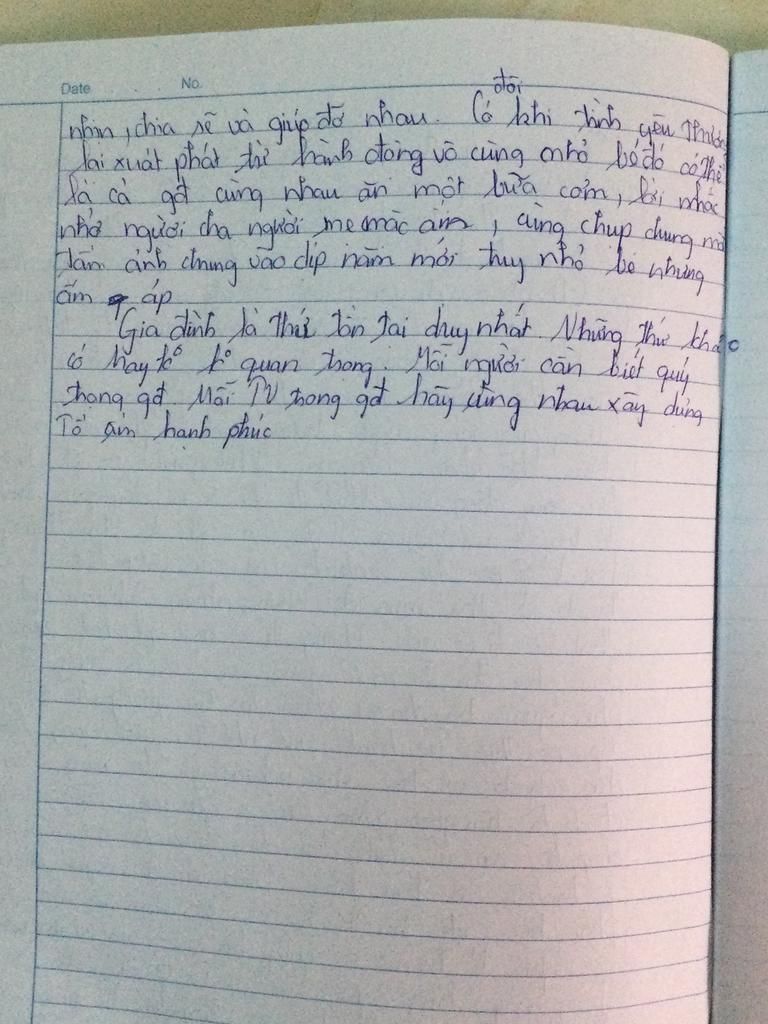 Date No.
đôi
nhịn, chia sẽ và giúp đỡ nhau. Có khi tình yêu thương
lại xuất phát từ hành động vô cùng nhỏ bé đó có thể
là cả gđ cùng nhau ăn một bữa cơm, lời nhắc
nhở người cha người mẹ mặc ấm, cùng chụp chung một
tấm ảnh chung vào dịp năm mới tuy nhỏ bé nhưng
ấm áp
Gia đình là thứ tồn tại duy nhất. Những thứ khác
có hay ko ko quan trọng. Mỗi người cần biết quý
trọng gđ. Mỗi TV trong gđ hãy cùng nhau xây dựng
Tổ ấm hạnh phúc